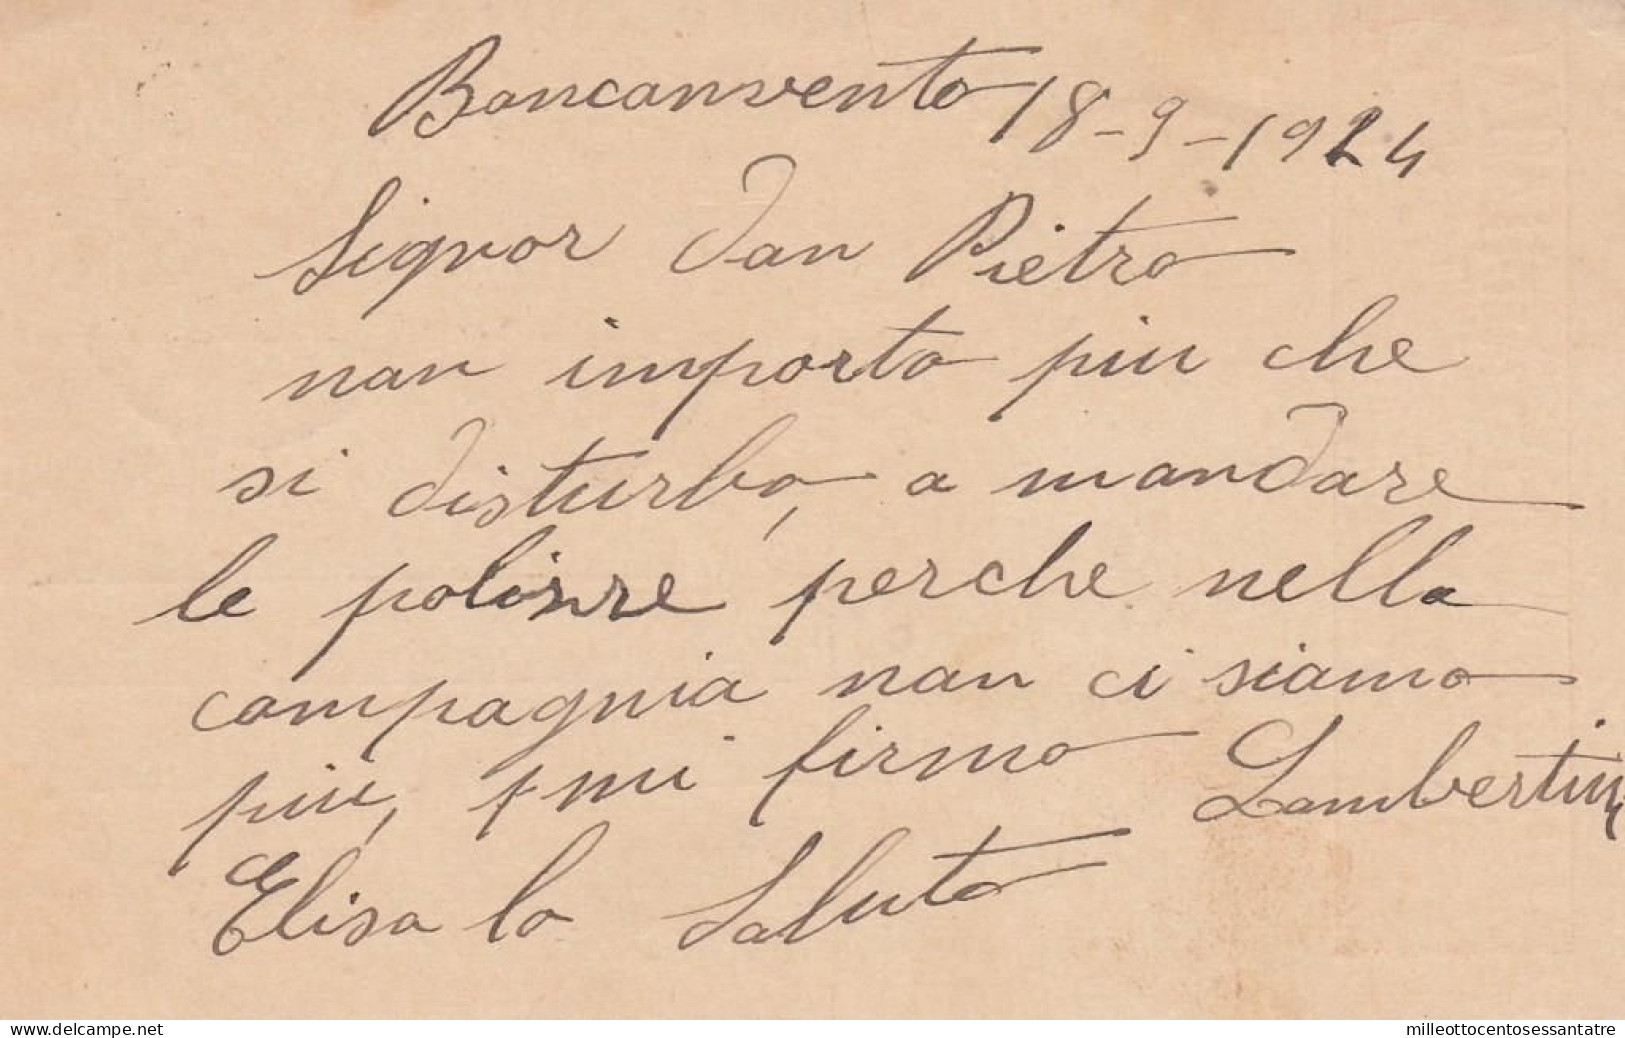 Bonconvento 18-9-1924
Signor Don Pietro
non importa più che
si disturba, a mandare
le polizze perche nella
compagnia non ci siamo
più, mi firmo Lambertini
Elisa la Saluto
www.delcampe.net
milleottocentosessantatre